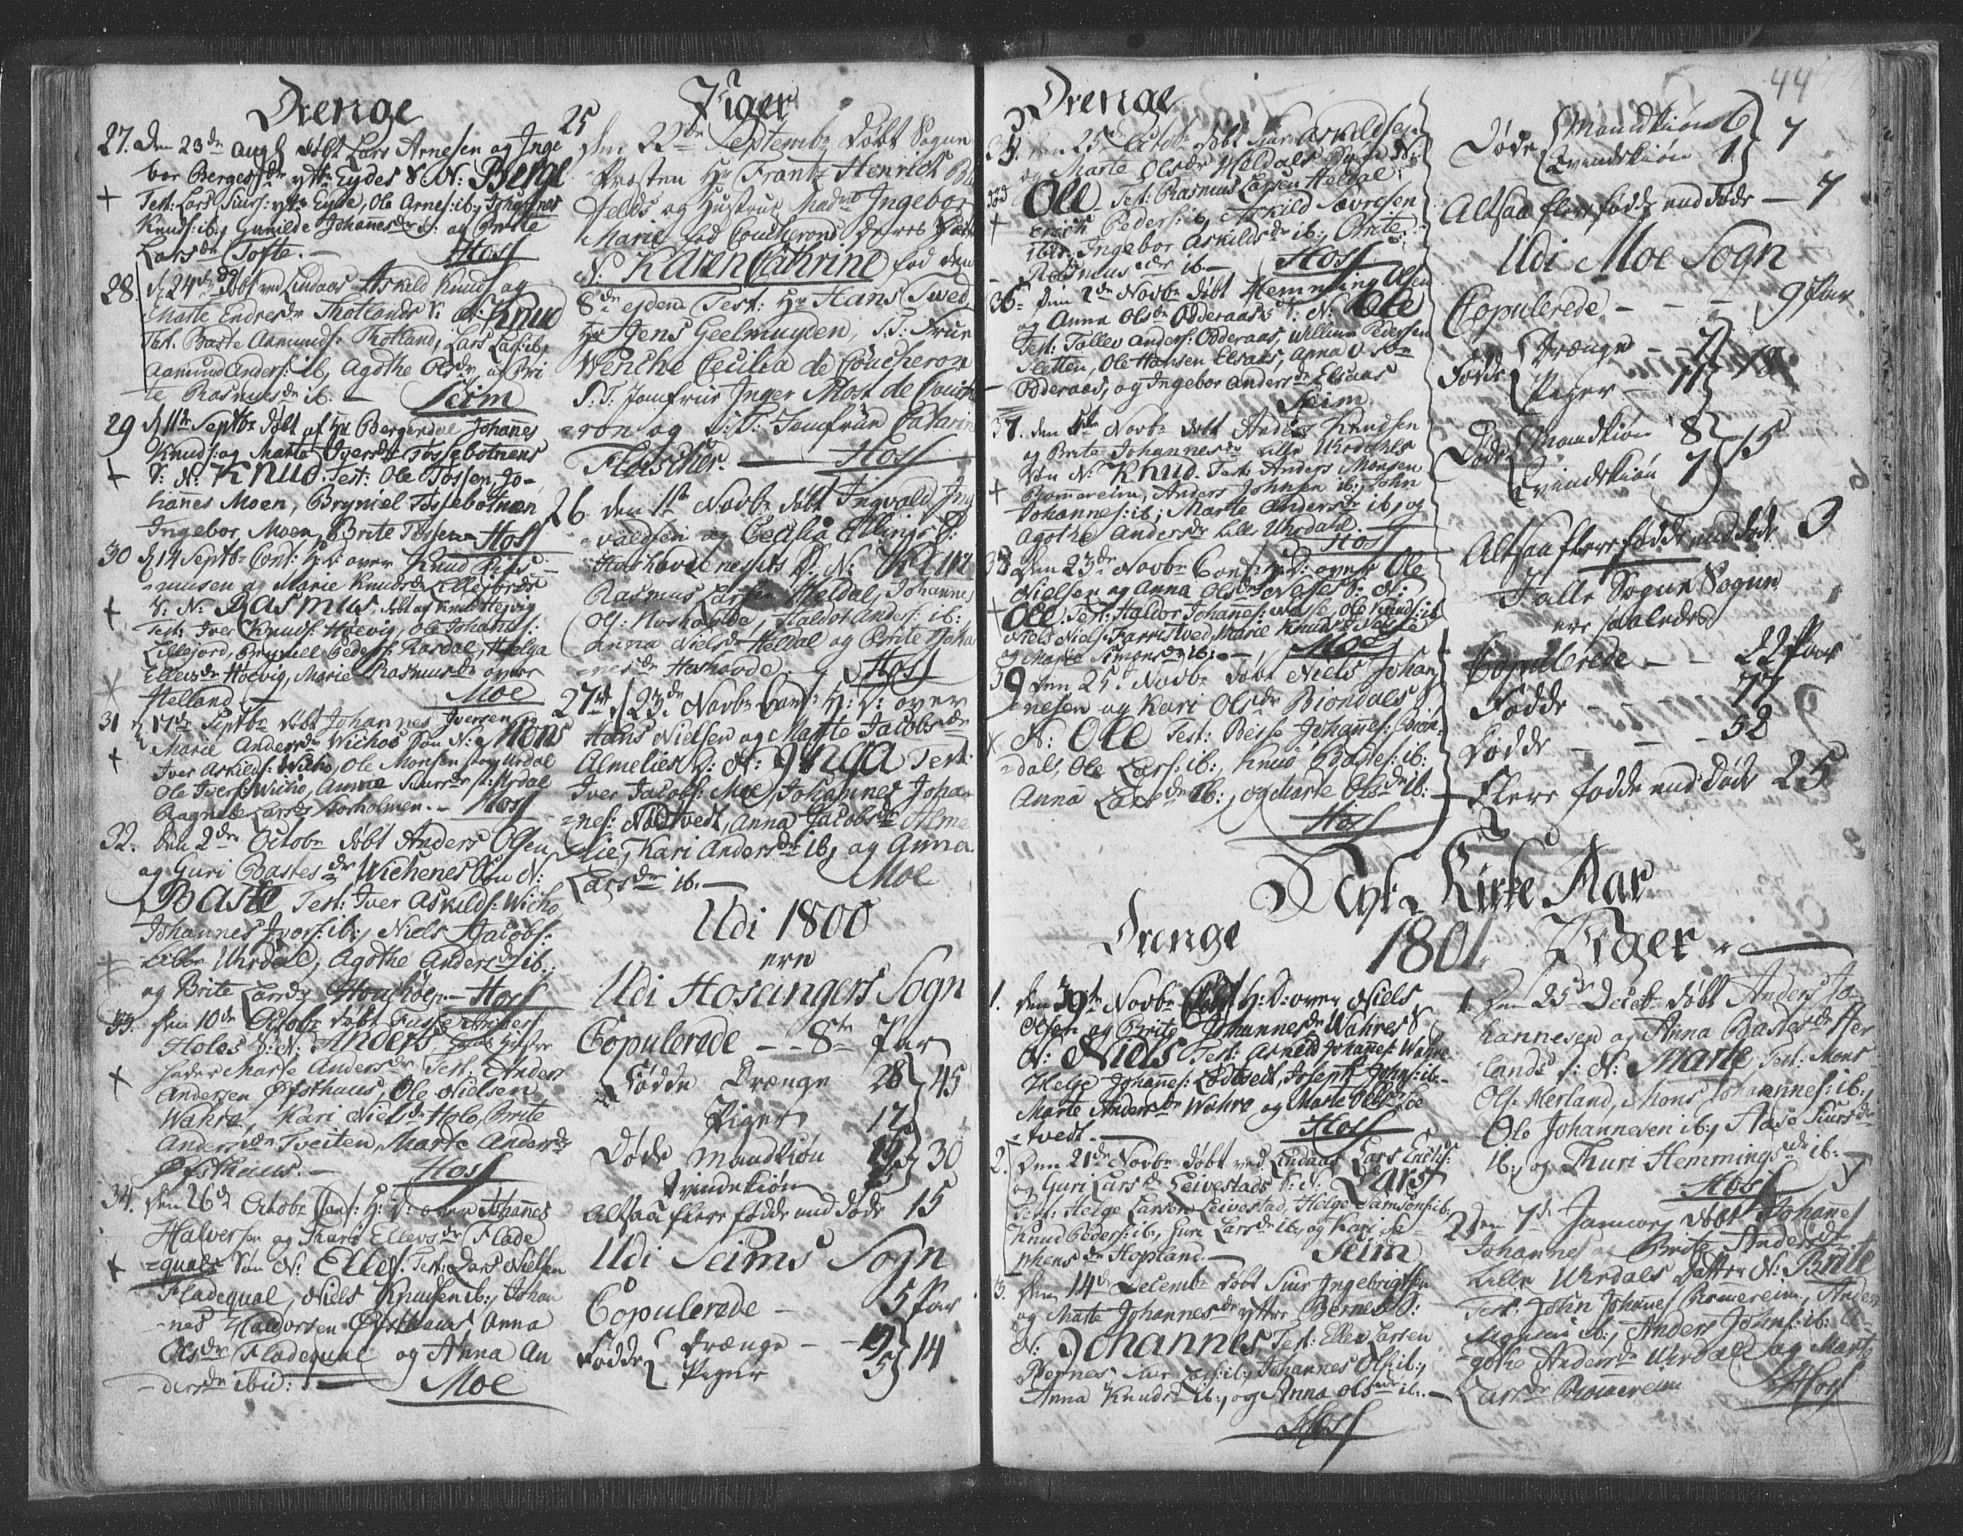 Drenge
27. Den 23de Aug døbt Lars Arnesen og Inge
bor Bergesdr yttr Eydes S. N: Berge
Test: Lars Siurs: yttr Eyde, Ole Arnes: ib:, Johannes
Knuds: ib, Gunilde Johannesdr ib: og Brite
Larsdr Tofte. —
Hoss
28. d. 24de dito døbt ved Lindaas Askild Knuds: og
Marte Endresdr Fhotlands S: N: Knud
Test: Baste Aamunds: Fhotland, Lars Lars: ib,
Aamund Anders: ib, Agothe Olsdr og Bri
te Rasmusdr ib: —
Seim
29 d 11te Septbr døbt af Hr Bergendal Johanes
Knuds: og Marta Iversdr Tossebotnens
S: N: Knud. Test: Ole Tossen, Jo-
hannes Moen, Bryniel Tossebotnen
Ingebor Moen, Brite Tossen
Hoss
30 d 14 Septbr Conf: H: D: over Knud Ras-
musen og Marie Knudsdr Lillefords
S: N: Rasmus døbt af Knud Høevig
Test: Iver Knuds: Høevig, Ole Johans:
Lillefjord, Brynill Peders: Kasdal, Helga
Ellevsdr Høevig, Marie Rasmusdr øvre
Helland —
Moe
31 d 17de Septbr døbt Johannes Iversen og
Marie Andersdr Wichos Søn N: Mons
Iver Askilds: Wicho, Ole Monsen store Urdal
Ole Ivers: Wicho, Anna Siursdr st: Urdal
Ragnele Larsdr Storholmen. —
Hoss
32. den 2den Octobr døbt Anders Olsen
og Guri Bastesdr Wichenes Søn N:
Baste Test: Iver Askilds: Wicho,
Johannes Ivers: ib:, Niels Jacobs:
Lille Uhrdal, Agothe Andersd. ib:,
og Brite Larsdr
Hoss
33. den 10de Octobr døbt
Holes S: N: Anders
Marte Andersdr Test: Anders
Andersen Østhaus, Ole Nielsen
Wahre, Kari Nielsdr Hole, Brite
Andersdr Tveiten, Marte Andersdr
Østhaus. —
Hoss
34. den 26de Octobr Conf: H: D: over Johannes
Halversen og Kari Ellevsdr Flade
quals Søn N: Ellef Test: Lars Nielsen
Fladequal, Niels Knudsen ib:, Johan
nes Haldorsen Østhaus Anna
Olsdr Fladequal og Anna An
dersdr ibid: —
Moe
Piger
25
den 22de Septembr døbt Sogne
Præsten Hr Frantz Henrich Bu
felds og Hustrue Madme Ingebor
Marie fød Coucherons Deres Datter
N: Karen Cathrine fød den
8de ejdem Test: Hr Hans Twed,
Hr Jens Geelmuyden, S.T: Frue
Wenche Cecilia de Coucheron
S.T: Jomfrue Inger Mos: de Couche
ron og S:T: Jomfrue Catarin
Fleischer. —
Hoss
26. den 1ste Novbr døbt Ingvald Ing
valdsen og Cecilia Ellings D:
D: N:
Rasmus Larsen Heldal, Johannes
Ols: Hoshovde, Haldor Anders: ib:
Anna Nielsdr Heldal og Brite Johan
nesdr Hoshovde —
Hoss
27de d 23de Novbr Conf: H: D: over
Hans Nielsen og Marte Jacobsdr
Almelies D: N: Inga Test:
Iver Jacobs: Moe, Johannes Johan
nes: Nødtvedt, Anna Jacobsdr Alme
lie, Kari Andersdr ib, og Anna
Larsdr ib. —
Moe
Udi 1800
ere
Udi Hosangers Sogn
Copulerede — 8te Par
Fødde Drænge 28 45
Piger 17
Døde Mandkiøn 30
Qvindekiøn
Altsaa flere fødde end døde 15
Udi Seims Sogn
Copulerede — 5 Par
Fødde Drænge — 9 14
Piger 5
44
Drenge
35. den 25de Octobr døbt Siur Askildsen
og Marte Olsdr Heldals Søn N:
Ole Test: Rasmus Larsen Heldal,
Erich Peders: ib, Askild Sævresen
ib:, Ingebor Askildsdr ib:, Brite
Rasmusdr ib: —
Hoss
36. den 2de Novbr døbt Hemming Olsen
og Anna Olsdr Odderaas S: N: Ole
Test: Tollev Anders: Odderaas, Willum Pedersen
Sletten, Ole Hansen Elsaas, Anna Olsdr
Odderaas, og Ingebor Andersdr Elsaas
Seim
37. den 5te Novbr døbt Anders Knudsen
og Brite Johannesdr Lille Urdahls
Søn N: Knud. Test: Anders Monsen
Romereim, Anders Johnsen ib:, John
Johannes: ib:, Marte Andersdr ib, og
Agothe Andersdr Lille Uhrdahl.
Hoss
38 den 23de Novbr Conf: H: D: over Ole
Nielsen og Anna Olsdr Neses S: N:
Ole. Test: Haldor Johannes: Nesse, Ole Knuds: ib
Niels Niels: Farrestved, Marie Knudsdr Nesse
og Maria Simonsdr ib: —
Moe
39 Den 25. Novbr døbt Niels Johan
nesen og Kari Olsdr Biondals S.
N: Ole Test: Beise Johannes: Bion-
dal, Ole Lars: ib:, Knud Bastes: ib:
Anna Larsdr ib:, og Marte Olsdr ib:
Hoss
Døde Mandkiøn 6 7
Qvindekiøn 1
Altsaa flere fødde end døde — 7
Udi Moe Sogn
Copulerede — 9 Par
Fødde Drænge — 7
Piger — 11
Døde Mandkiøn 8 15
Qvindekiøn 7
Altsaa flere fødde end døde 3
I alle Sogne Sogne
ere saaledes
Copulerede — 22 Par
Fødde — 77
Dødde — 52
Flere fødde end døde 25
Nyt Kirke Aar
1801
Drenge
1. den 30te Novbr Conf H: D: over Niels
Olsen og Brite Johannesdr Wahres S
N: Niels Test: Arnfin Johannes: Wahre
Helge Johannes: Lødtvedt, Joseph Johns: ib:
Marte Andersdr Wahre og Marte Olsdr
tvedt. —
Hoss
2. Den 21de Novbr døbt ved Lindaas Lars Erichs:
og Guri Larsdr Leivestads S: N: Lars
Test: Helge Larsen Leivestad, Helge Samsons: ib,
Knud Peders: ib:, Guri Larsdr ib:, og Kari Ste
phensdr Hopsland. —
Seim
3. Den 14de Decembr døbt Siur Ingebrigtsen
og Marte Johannesdr yttre Bernes S:
N: Johannes Test: Ellev Larsen
Bernes, Siur Lars: ib:, Johannes Ols: ib:,
Anna Knudsdr ib:, og Anna Olsdr ib: —
Hoss
Piger
1 den 25de Decbr døbt Anders Jo
hannesen og Anna Bastesdr Her
lands D: N: Marie, Test: Mons
Ols: Herland, Mons Johannes: ib:,
Ole Johannesen ib:, Aase Siursdr
ib:, og Thuri Hemmingsdr ib: —
Hoss
2 den 7de Januarj døbt Johanes
Johannes og Brite Andersdr
Lille Uhrdals Datter N: Brite
Test: John Johanes Romereim, Anders
Monsen ib:, Anders Johns: ib: A-
gothe Andersdr Urdal og Marte
Larsdr Romereim
Hoss